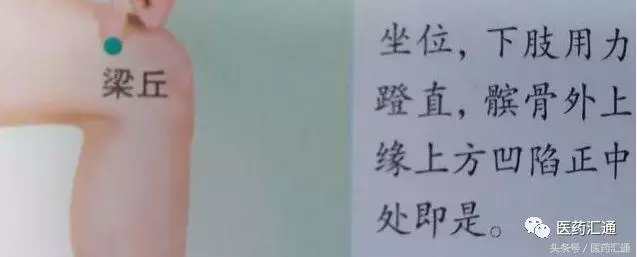 梁丘
坐位，下肢用力
蹬直，髌骨外上
缘上方凹陷正中
处即是。
医药汇通
头条号 / 医药汇通